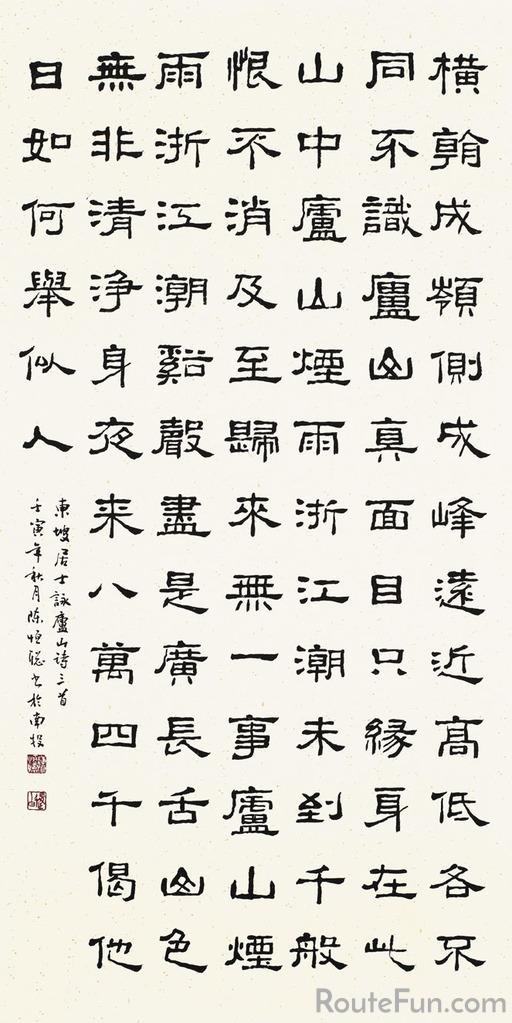 橫看成嶺側成峰遠近髙低各不
同不識廬山真面目只緣身在此
山中廬山煙雨浙江潮未到千般
恨不消及至歸來無一事廬山煙
雨浙江潮谿聲盡是廣長舌山色
無非清淨身夜来八萬四千偈他
日如何舉似人
東坡居士詠廬山诗三首
壬寅年秋月陈恒聪书於南投
RouteFun.com